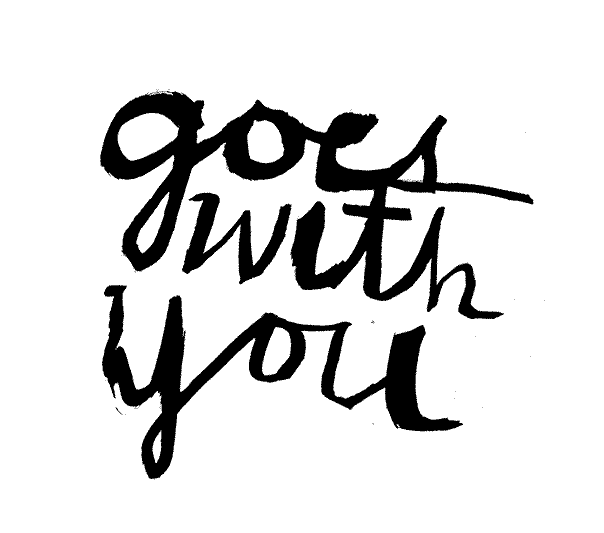 goes
with
you